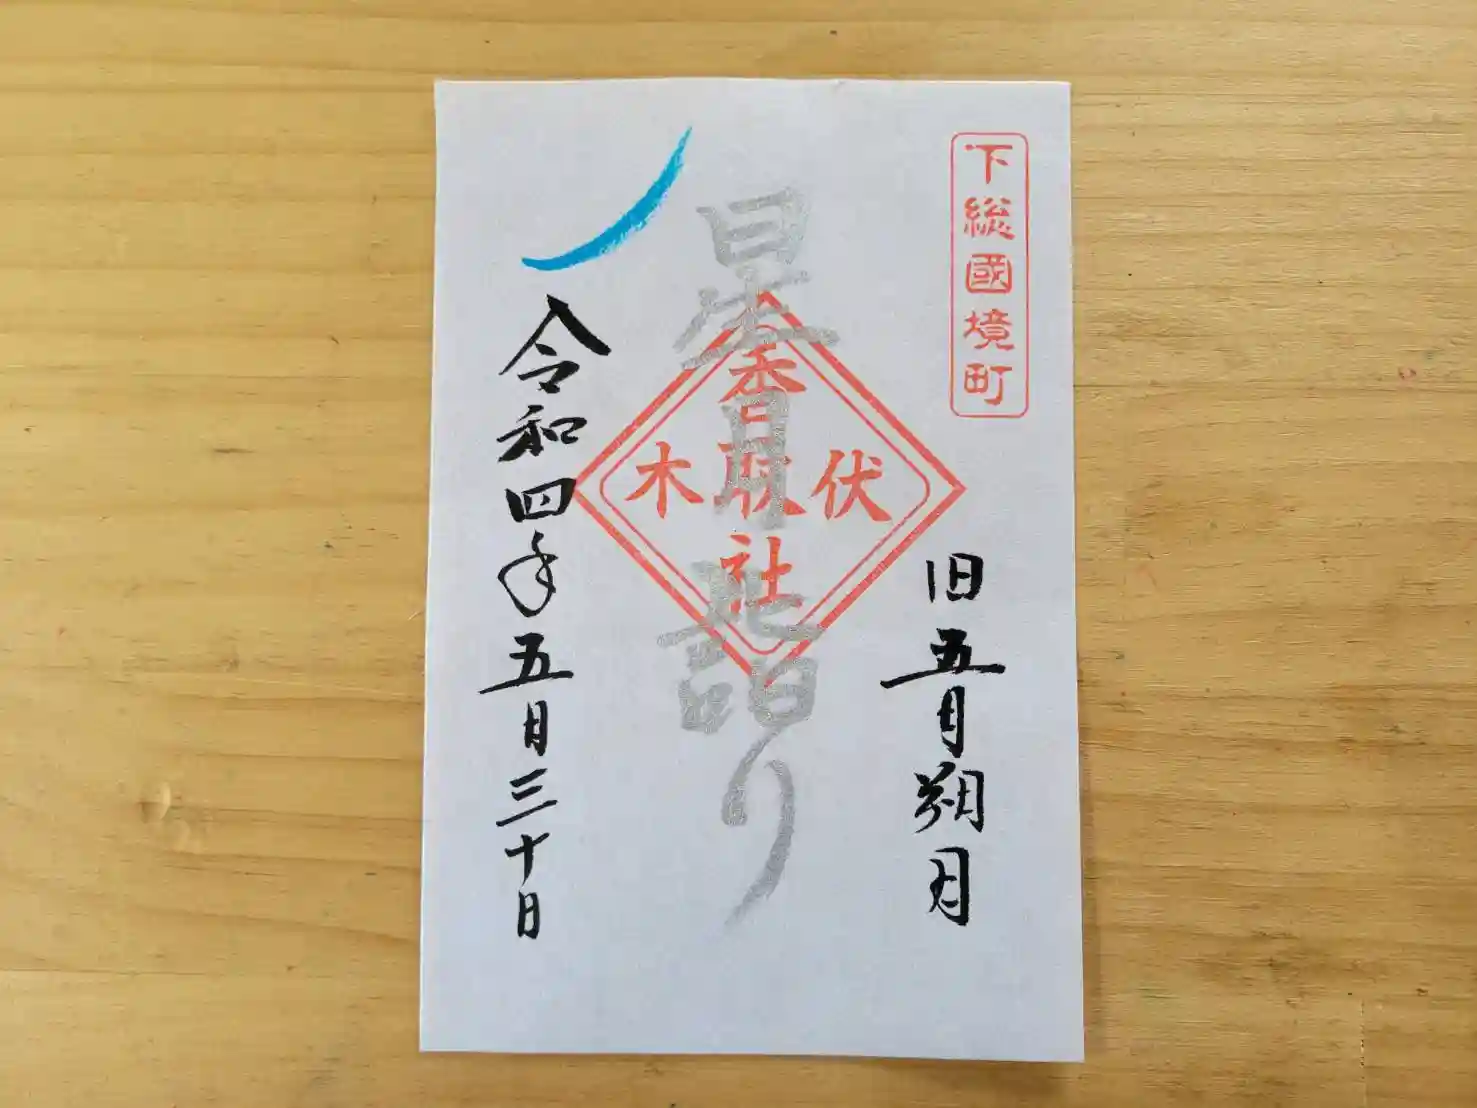 下総國境町
旧五月朔月
星月詣り
伏木
香取社
令和四年五月三十日